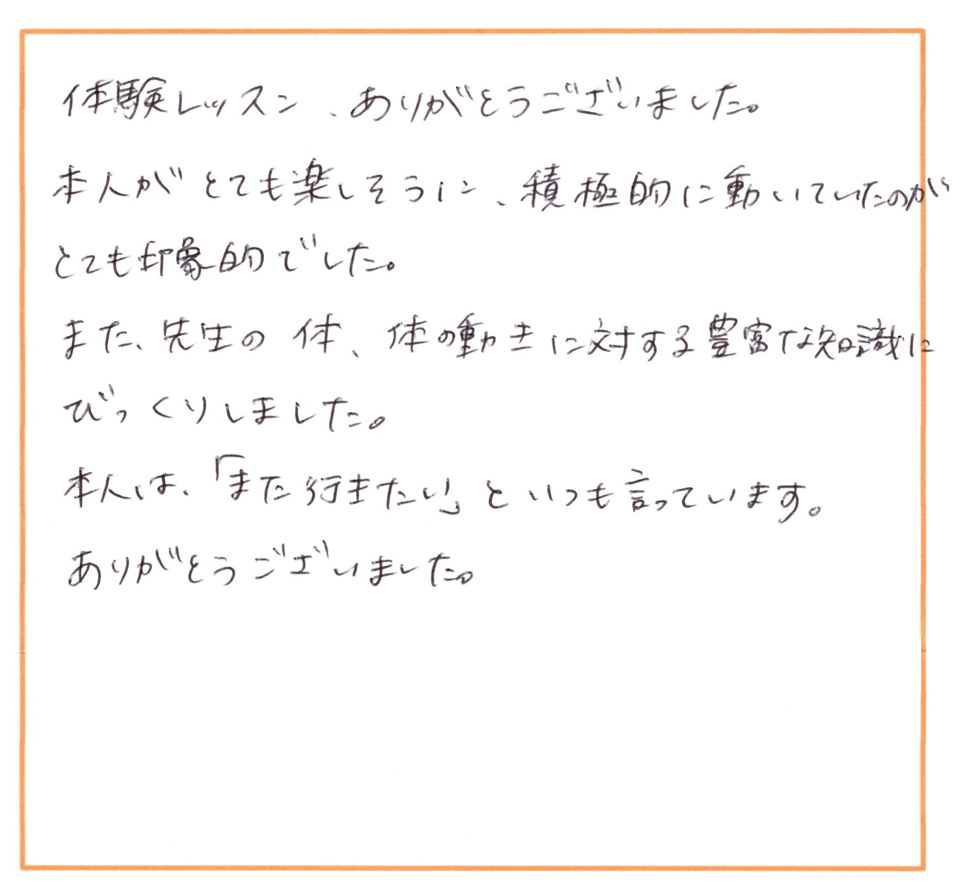 体験レッスン、ありがとうございました。
本人がとても楽しそうに、積極的に動いていたのが
とても印象的でした。
また、先生の体、体の動きに対する豊富な知識に
びっくりしました。
本人は、「また行きたい」といつも言っています。
ありがとうございました。